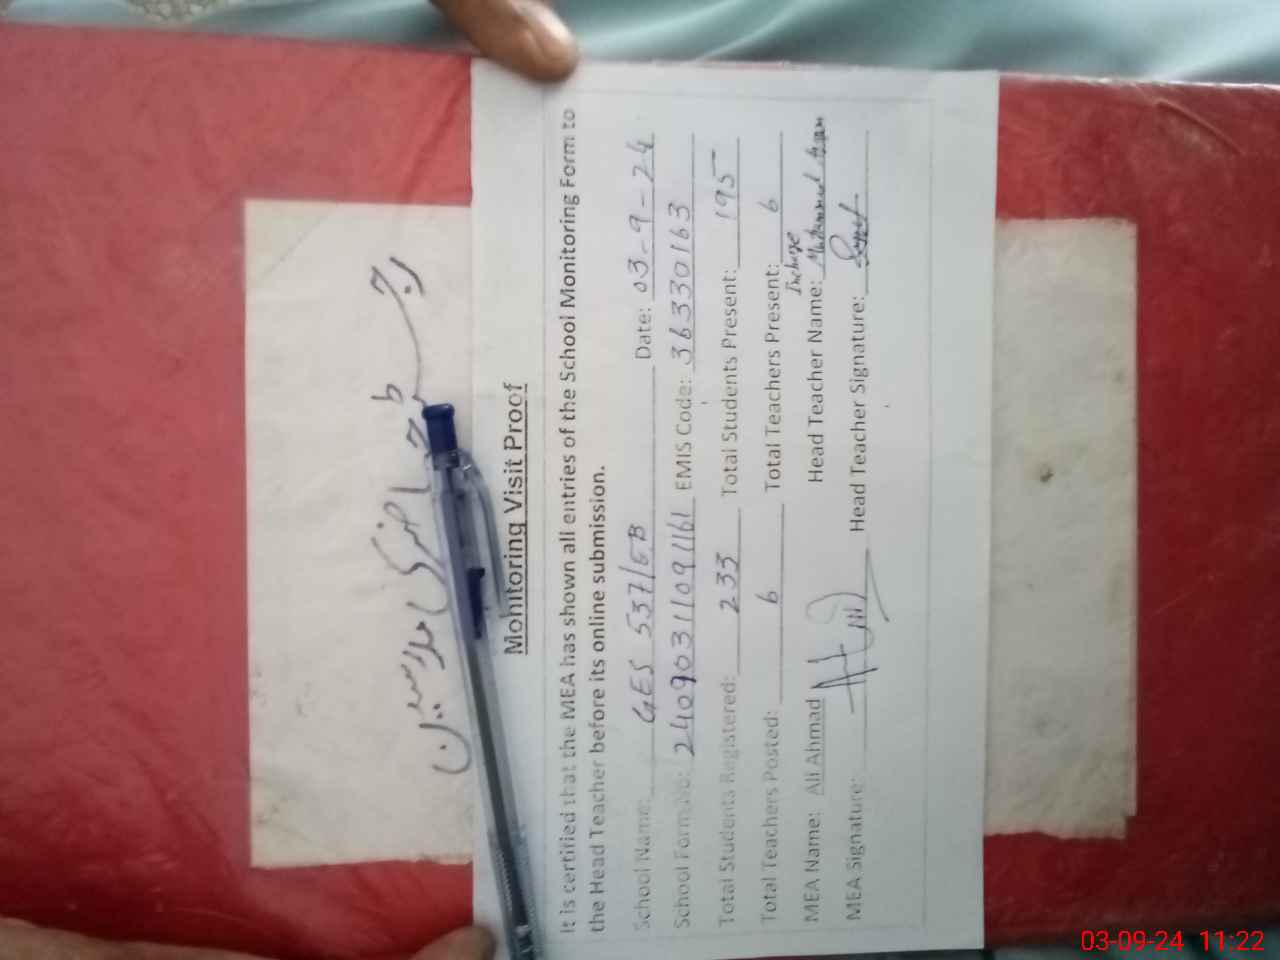 رجسٹر حاضری ملازمین
Monitoring Visit Proof
It is certified that the MEA has shown all entries of the School Monitoring Form to
the Head Teacher before its online submission.
School Name: GES 537/EB Date: 03-9-24
School Form No: 24090311091161 EMIS Code: 36330163
Total Students Registered: 233 Total Students Present: 195
Total Teachers Posted: 6 Total Teachers Present: 6
Incharge
MEA Name: Ali Ahmad Head Teacher Name: Muhammad
MEA Signature: Head Teacher Signature:
03-09-24 11:22